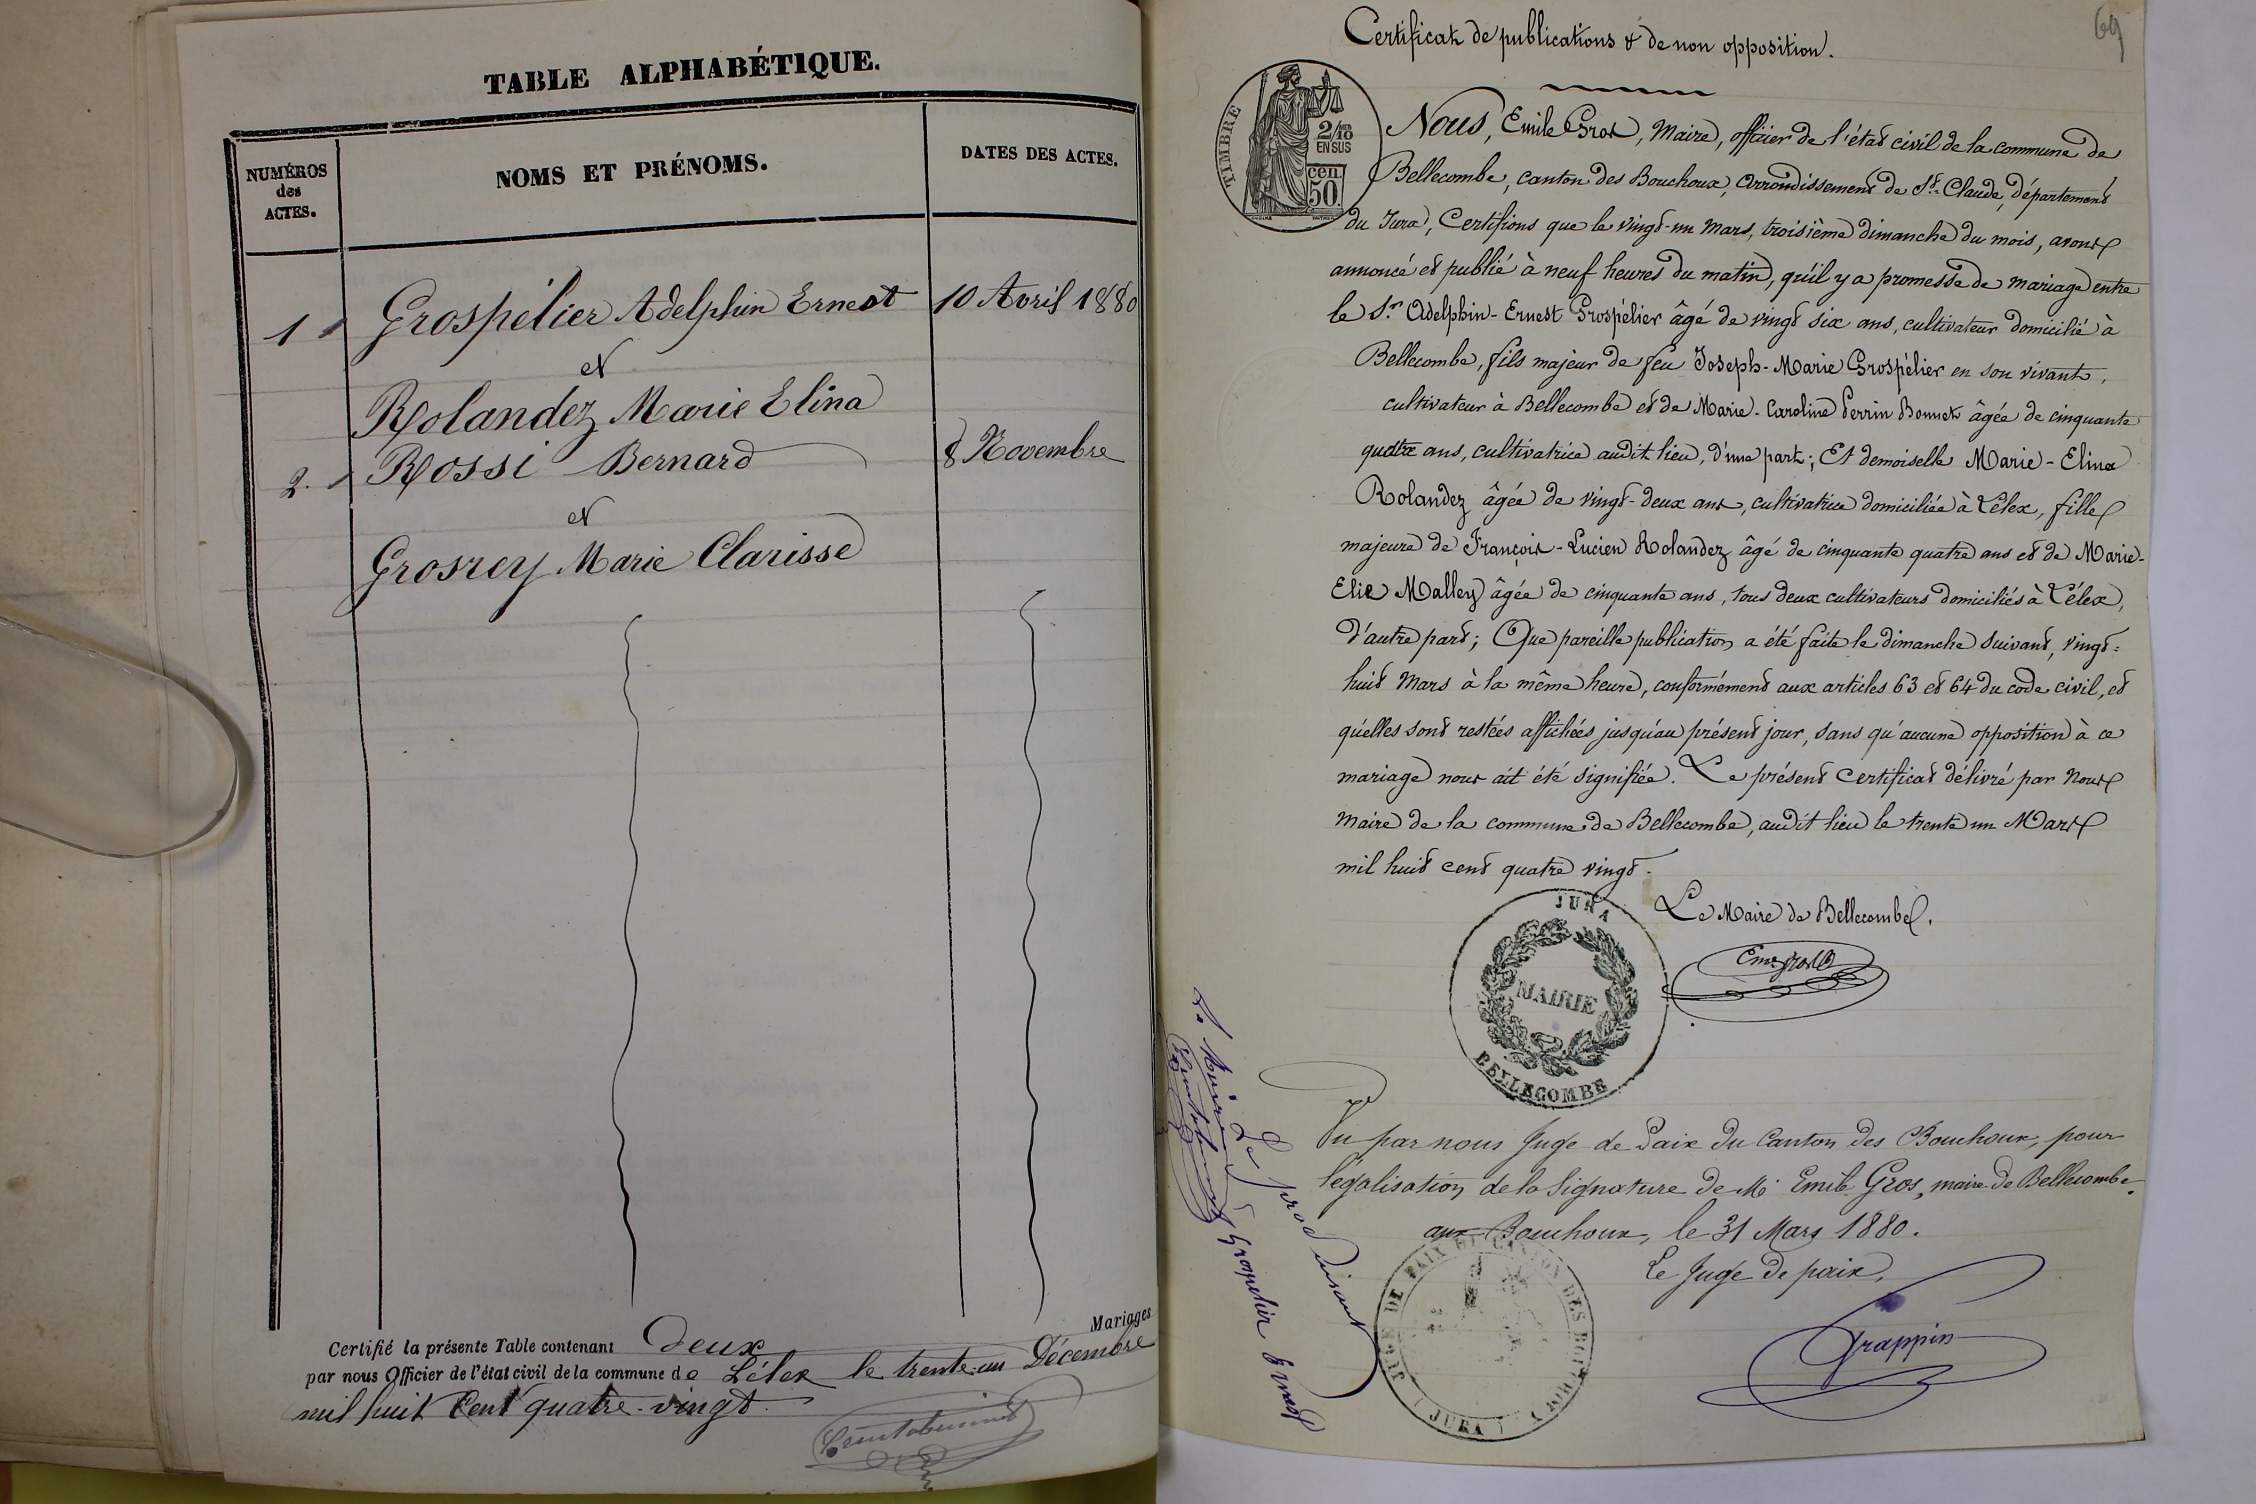 TABLE ALPHABÉTIQUE.
NUMÉROS
des
ACTES.
NOMS ET PRÉNOMS.
DATES DES ACTES.
1
Grospélier Adelphin Ernest
10 Avril 1880
et
Rolandez Marie Elina
2.
Rossi Bernard
8 Novembre
et
Grosrey Marie Clarisse
Mariages
Certifié la présente Table contenant deux
par nous Officier de l'état civil de la commune de Lélex le trente-un Décembre
mil huit cent quatre-vingt
69
Certificat de publications & de non opposition.
TIMBRE
2/10
EN SUS
CEN.
50.
Nous, Emile Gros, Maire, officier de l'état civil de la commune de
Bellecombe, canton des Bouchoux, arrondissement de St. Claude, département
du Jura, Certifions que le vingt-un Mars, troisième dimanche du mois, avons
annoncé et publié à neuf heures du matin, qu'il y a promesse de mariage entre
le Sr. Adelphin-Ernest Grospélier âgé de vingt six ans, cultivateur domicilié à
Bellecombe, fils majeur de feu Joseph-Marie Grospélier en son vivant,
cultivateur à Bellecombe et de Marie-Caroline Perrin Bonnet âgée de cinquante
quatre ans, cultivatrice audit lieu, d'une part; Et demoiselle Marie-Elina
Rolandez âgée de vingt-deux ans, cultivatrice domiciliée à Lélex, fille
majeure de François-Lucien Rolandez âgé de cinquante quatre ans et de Marie-
Elie Malley âgée de cinquante ans, tous deux cultivateurs domiciliés à Lélex,
d'autre part; Que pareille publication a été faite le dimanche suivant, vingt-
huit Mars à la même heure, conformément aux articles 63 et 64 du code civil, et
qu'elles sont restées affichées jusqu'au présent jour, sans qu'aucune opposition à ce
mariage nous ait été signifiée. Le présent certificat délivré par Nous
Maire de la commune de Bellecombe, audit lieu le trente un Mars
mil huit cent quatre vingt.
Le Maire de Bellecombe.
JURA
MAIRIE
BELLECOMBE
Vu par nous Juge de Paix du Canton des Bouchoux, pour
légalisation de la signature de Mr Emile Gros, maire de Bellecombe.
aux Bouchoux, le 31 Mars 1880.
Le Juge de paix,
Grappin
JUGE DE PAIX DU CANTON DES BOUCHOUX
(JURA)
Le Maire
Grospelier Ernest